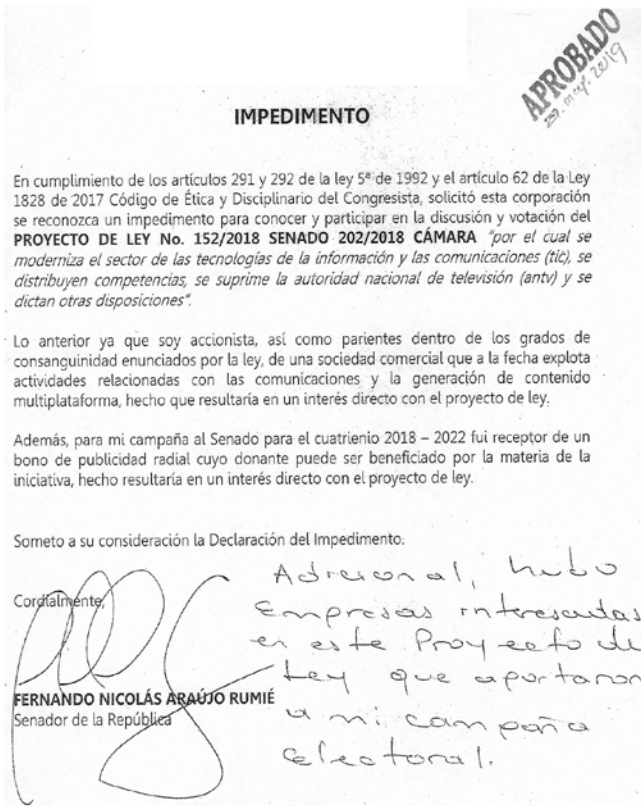 APROBADO
2019
IMPEDIMENTO
En cumplimiento de los artículos 291 y 292 de la ley 5ª de 1992 y el artículo 62 de la Ley
1828 de 2017 Código de Ética y Disciplinario del Congresista, solicitó esta corporación
se reconozca un impedimento para conocer y participar en la discusión y votación del
PROYECTO DE LEY No. 152/2018 SENADO 202/2018 CÁMARA "por el cual se
moderniza el sector de las tecnologías de la información y las comunicaciones (tic), se
distribuyen competencias, se suprime la autoridad nacional de televisión (antv) y se
dictan otras disposiciones".
Lo anterior ya que soy accionista, así como parientes dentro de los grados de
consanguinidad enunciados por la ley, de una sociedad comercial que a la fecha explota
actividades relacionadas con las comunicaciones y la generación de contenido
multiplataforma, hecho que resultaría en un interés directo con el proyecto de ley.
Además, para mi campaña al Senado para el cuatrienio 2018 – 2022 fui receptor de un
bono de publicidad radial cuyo donante puede ser beneficiado por la materia de la
iniciativa, hecho resultaría en un interés directo con el proyecto de ley.
Someto a su consideración la Declaración del Impedimento.
Cordialmente,
FERNANDO NICOLÁS ARAÚJO RUMIÉ
Senador de la República
Adicional, hubo
Empresas interesadas
en este Proyecto de
Ley que aportaron
a mi campaña
electoral.